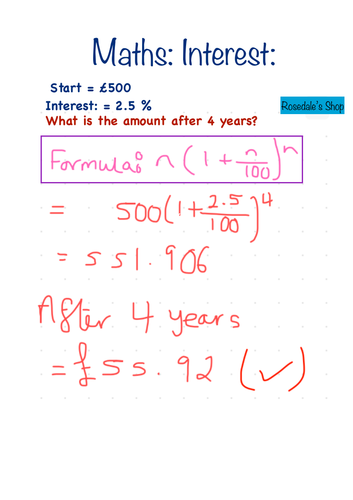 Maths: Interest:
Start = £500
Interest: = 2.5 %
Rosedale's Shop
What is the amount after 4 years?
Formula: n ( 1 + n/100 )^n
= 500 ( 1 + 2.5/100 )^4
= 551.906
After 4 years
= £55.92 (✓)